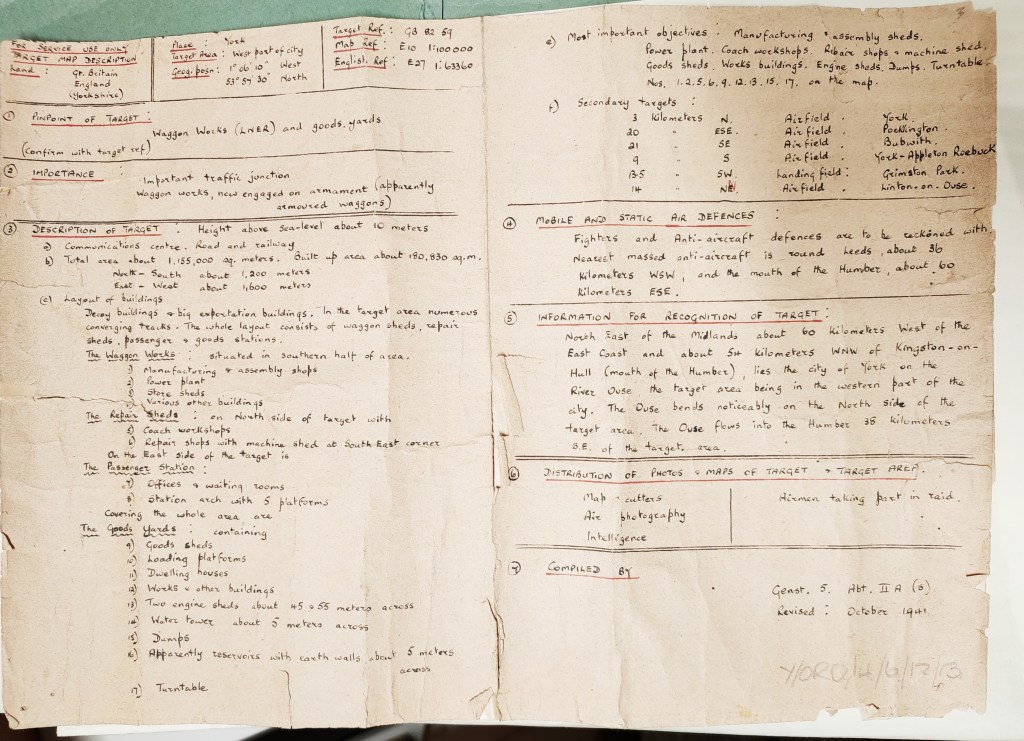 FOR SERVICE USE ONLY
TARGET MAP DESCRIPTION
Land : Gt. Britain
England
(Yorkshire)
Place : York
Target Area : West part of city
Geog. posn : 1° 06' 10" West
53° 57' 30" North
Target Ref : GB 82 59
Map Ref : E10 1:100000
English Ref : E27 1:63360
① PINPOINT OF TARGET :
Waggon Works (LNER) and goods yards
(Confirm with target ref)
② IMPORTANCE : Important traffic junction
Waggon works, now engaged on armament (apparently
armoured waggons)
③ DESCRIPTION OF TARGET : Height above sea-level about 10 meters
a) Communications centre. Road and railway
b) Total area about 1,155,000 sq. meters. Built up area about 180,830 sq.m.
North - South about 1,200 meters
East - West about 1,600 meters
(c) Layout of buildings
Decoy buildings & big exportation buildings. In the target area numerous
converging tracks. The whole layout consists of waggon sheds, repair
sheds, passenger & goods stations.
The Waggon Works : situated in southern half of area.
1) Manufacturing & assembly shops
2) Power plant
3) Store sheds
4) Various other buildings
The Repair Sheds : on North side of target with
5) Coach workshops
6) Repair shops with machine shed at South-East corner
On the East side of the target is
The Passenger Station :
7) Offices & waiting rooms
8) Station arch with 5 platforms
Covering the whole area are
The Goods Yards : containing
9) Goods sheds
10) Loading platforms
11) Dwelling houses
12) Works & other buildings
13) Two engine sheds about 45 & 55 meters across
14) Water tower about 5 meters across
15) Dumps
16) Apparently reservoirs with earth walls about 5 meters
across
17) Turntable
e) Most important objectives. Manufacturing & assembly sheds.
Power plant. Coach workshops. Repair shops & machine shed.
Goods sheds. Works buildings. Engine sheds. Dumps. Turntable.
Nos. 1.2.5.6.9.12.13.15.17. on the map.
f) Secondary targets :
3 Kilometers N. Airfield . York.
20 " ESE. Airfield . Pocklington.
21 " SE Airfield . Bubwith.
9 " S Airfield . York-Appleton Roebuck
13.5 " SW. Landing field : Grimston Park.
14 " Airfield . Linton-on-Ouse.
④ MOBILE AND STATIC AIR DEFENCES :
Fighters and Anti-aircraft defences are to be reckoned with.
Nearest massed anti-aircraft is round Leeds, about 36
Kilometers WSW, and the mouth of the Humber, about 60
Kilometers ESE.
⑤ INFORMATION FOR RECOGNITION OF TARGET :
North East of the Midlands about 60 Kilometers West of the
East Coast and about 54 Kilometers WNW of Kingston-on-
Hull (mouth of the Humber), lies the city of York on the
River Ouse the target area being in the western part of the
city. The Ouse bends noticeably on the North side of the
target area. The Ouse flows into the Humber 38 Kilometers
S.E. of the target area.
⑥ DISTRIBUTION OF PHOTOS & MAPS OF TARGET & TARGET AREA.
Map-cutters
Air photography
Intelligence
Airmen taking part in raid.
⑦ COMPILED BY
Genst. 5. Abt. II A (S)
Revised : October 1941